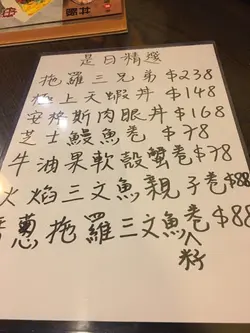 是日精選
拖羅三兄弟 $238
極上天蝦丼 $148
安格斯肉眼丼 $168
芝士鰻魚卷 $78
牛油果軟殼蟹卷 $78
火焰三文魚親子卷 $88
香蔥拖羅三文魚卷 $88
籽